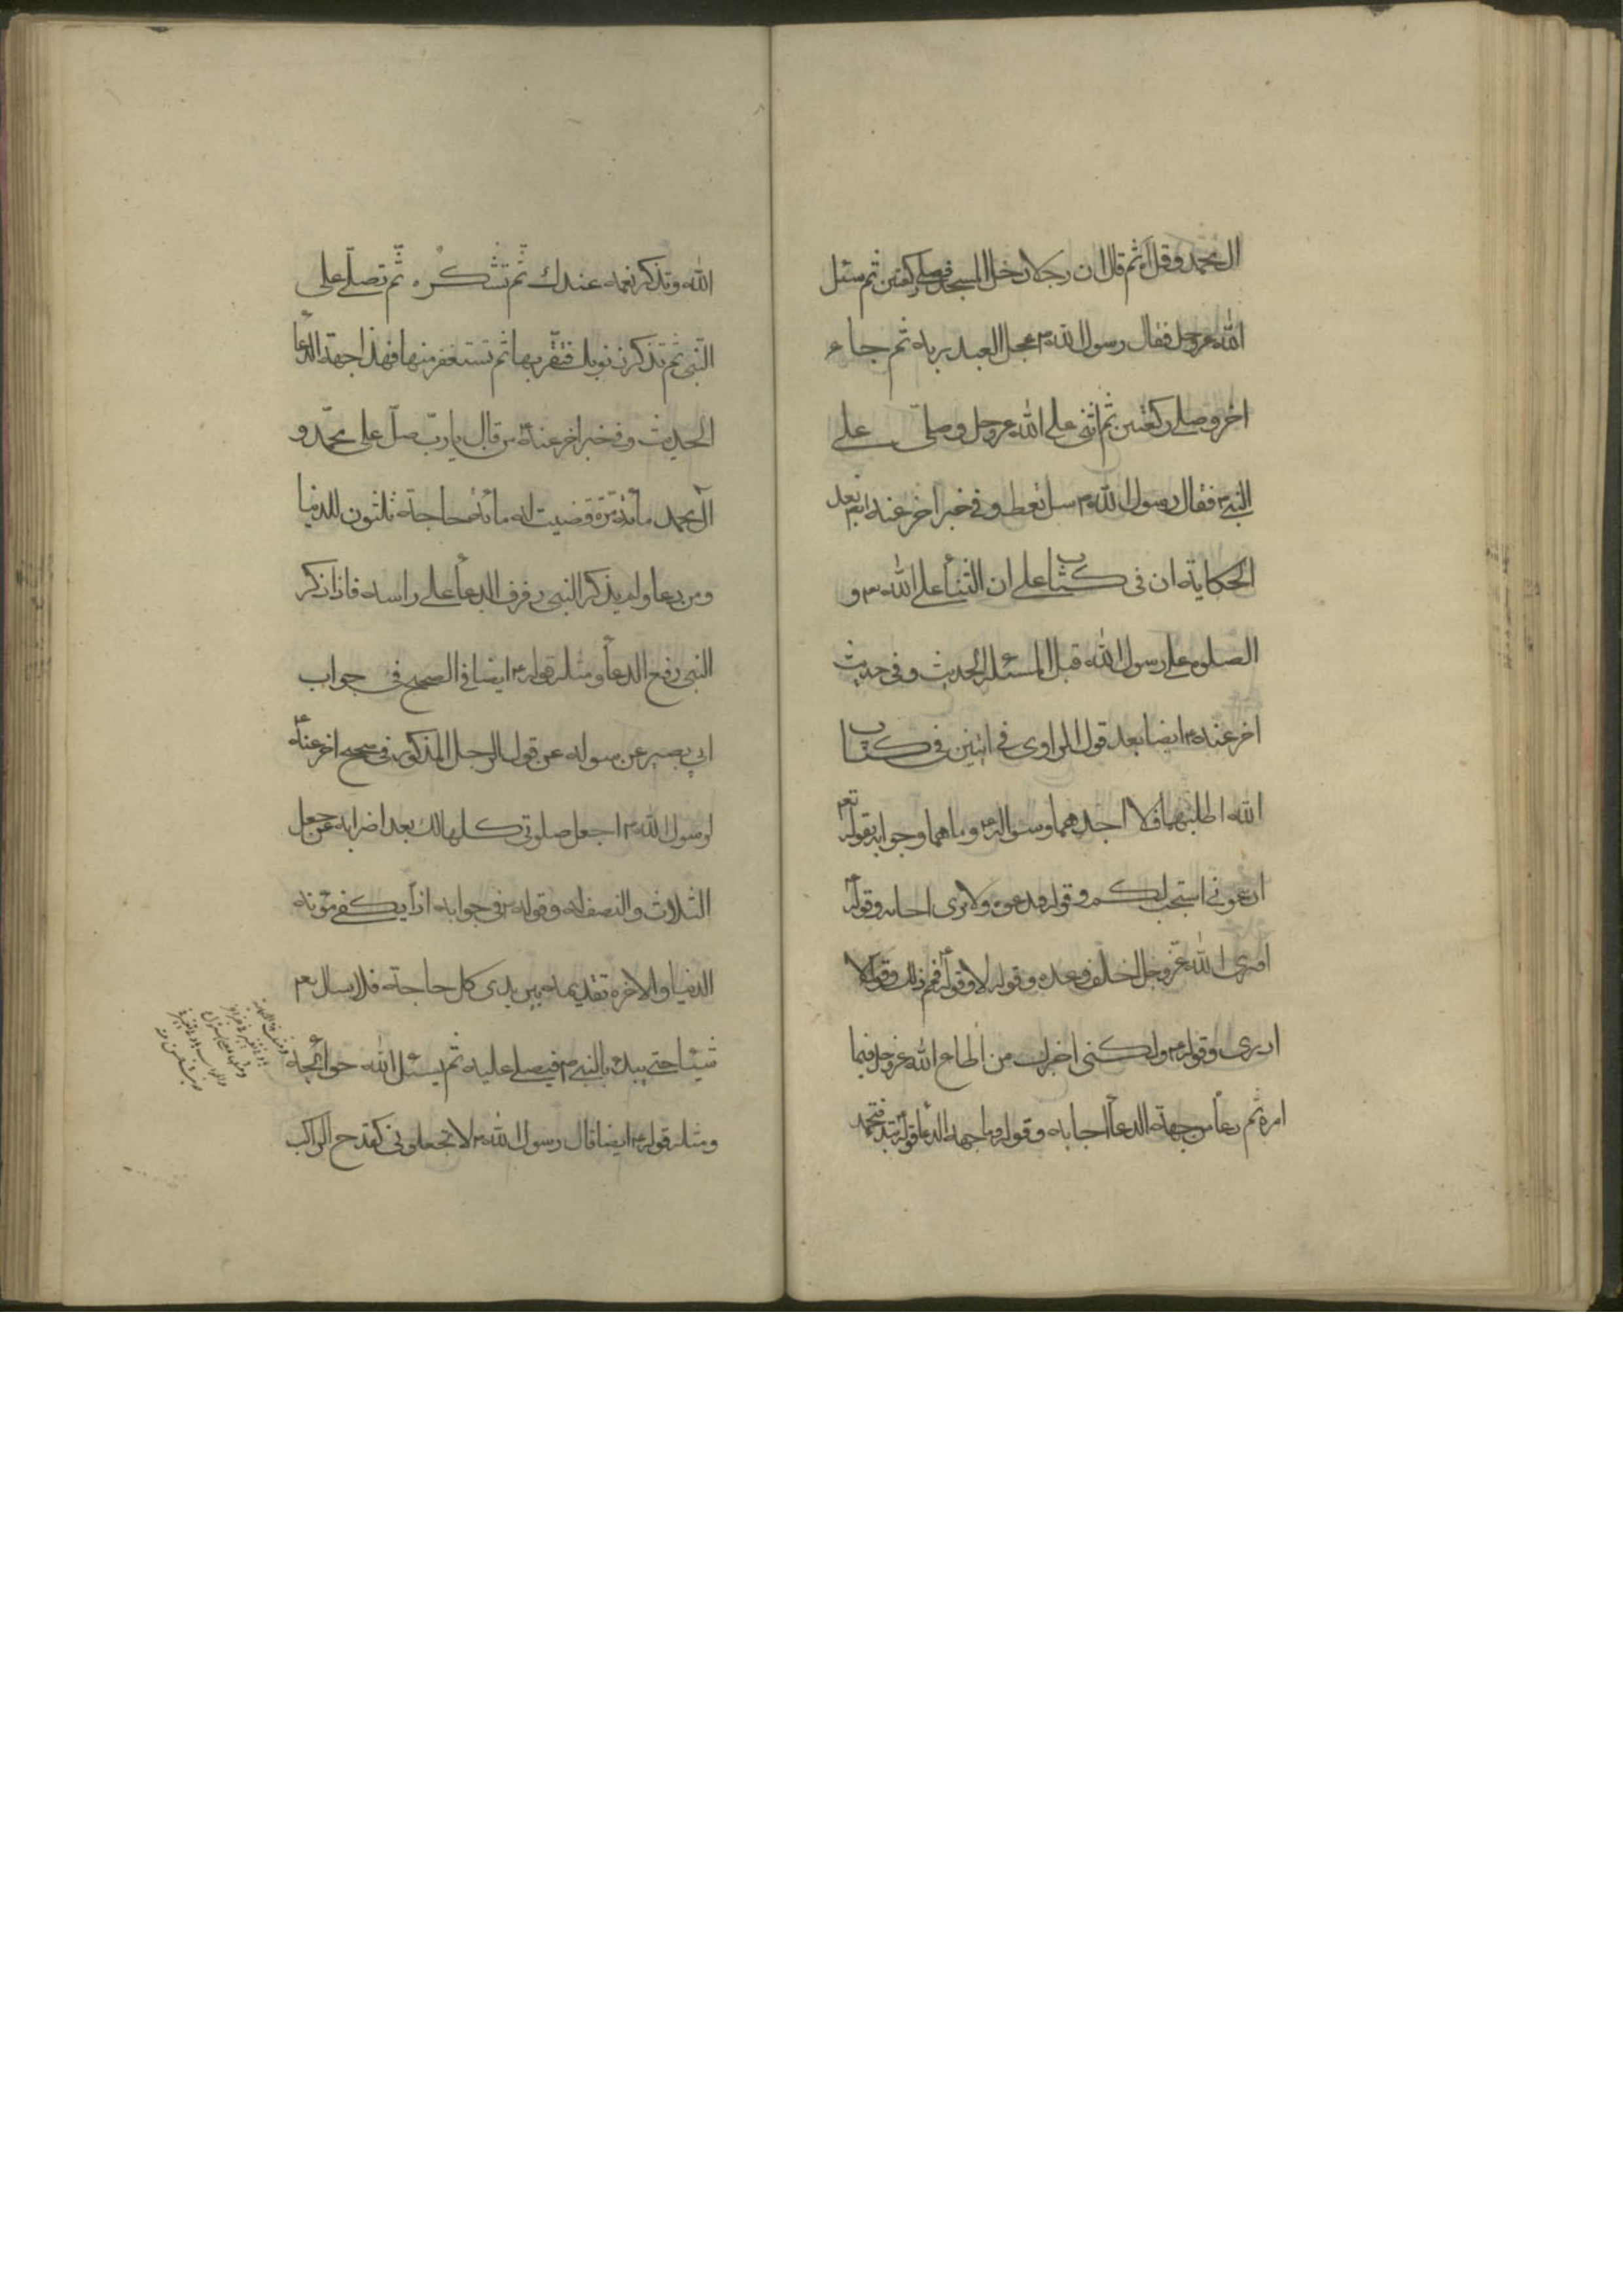 ال محمد وقل ثم قال ان رجلا دخل المسجد فصلى ركعتين ثم سئل
الله عزوجل فقال رسول الله عجل العبد بربه ثم جاء
اخر وصلى ركعتين ثم اثنى على الله عزوجل وصلى على
النبي فقال رسول الله سل تعط وفي خبر اخر عنه بعد
الحكاية ان في كتاب على ان الثنا على الله و
الصلوة على رسول الله قبل المسئله الحديث وفي حديث
اخر عنه ايضا بعد قول الراوى في ايتين في كتاب
الله اطلبهما فلا اجدهما وسواله وما هما وجوابه بقوله تعم
ادعوني استجب لكم وقوله فندعوه ولا نرى اجابه وقوله
افترى الله عزوجل اخلف وعده وقوله لا وقوله فمم ذلك وقوله لا
ادرى وقوله ولكنى اخبرك من اطاع الله عزوجل فيما
امره ثم دعا من جهة الدعا اجابه وقوله وما جهة الدعا قوله تبد فتحمد
الله وتذكر نعمه عندك ثم تشكره ثم تصلى على
النبي ثم تذكر ذنوبك فتقر بها ثم تستغفر منها فهذا جهة الدعا
الحديث وفي خبر اخر عنه من قال يا رب صل على محمد و
آل محمد مائة مرة قضيت له مائة حاجة ثلثون للدنيا
ومن دعا ولم يذكر النبي رفرف الدعا على راسه فاذا ذكر
النبي رفع الدعا ومثله قوله ايضا في الصحيح في جواب
ابي بصير عن سواله عن قول الرجل المذكور في صحيح اخر عنه
لرسول الله اجعل صلوتي كلها لك بعد اضرابه عن جعل
الثلاث والنصف له وقوله في جوابه اذا يكفى مؤنة
الدنيا والاخرة تقديمه بين يدى كل حاجة فلا يسال
شيئا حتى يبدء بالنبي فيصلى عليه ثم يسئل الله حوائجه
ومثله قوله ايضا قال رسول الله لا تجعلوني كقدح الراكب